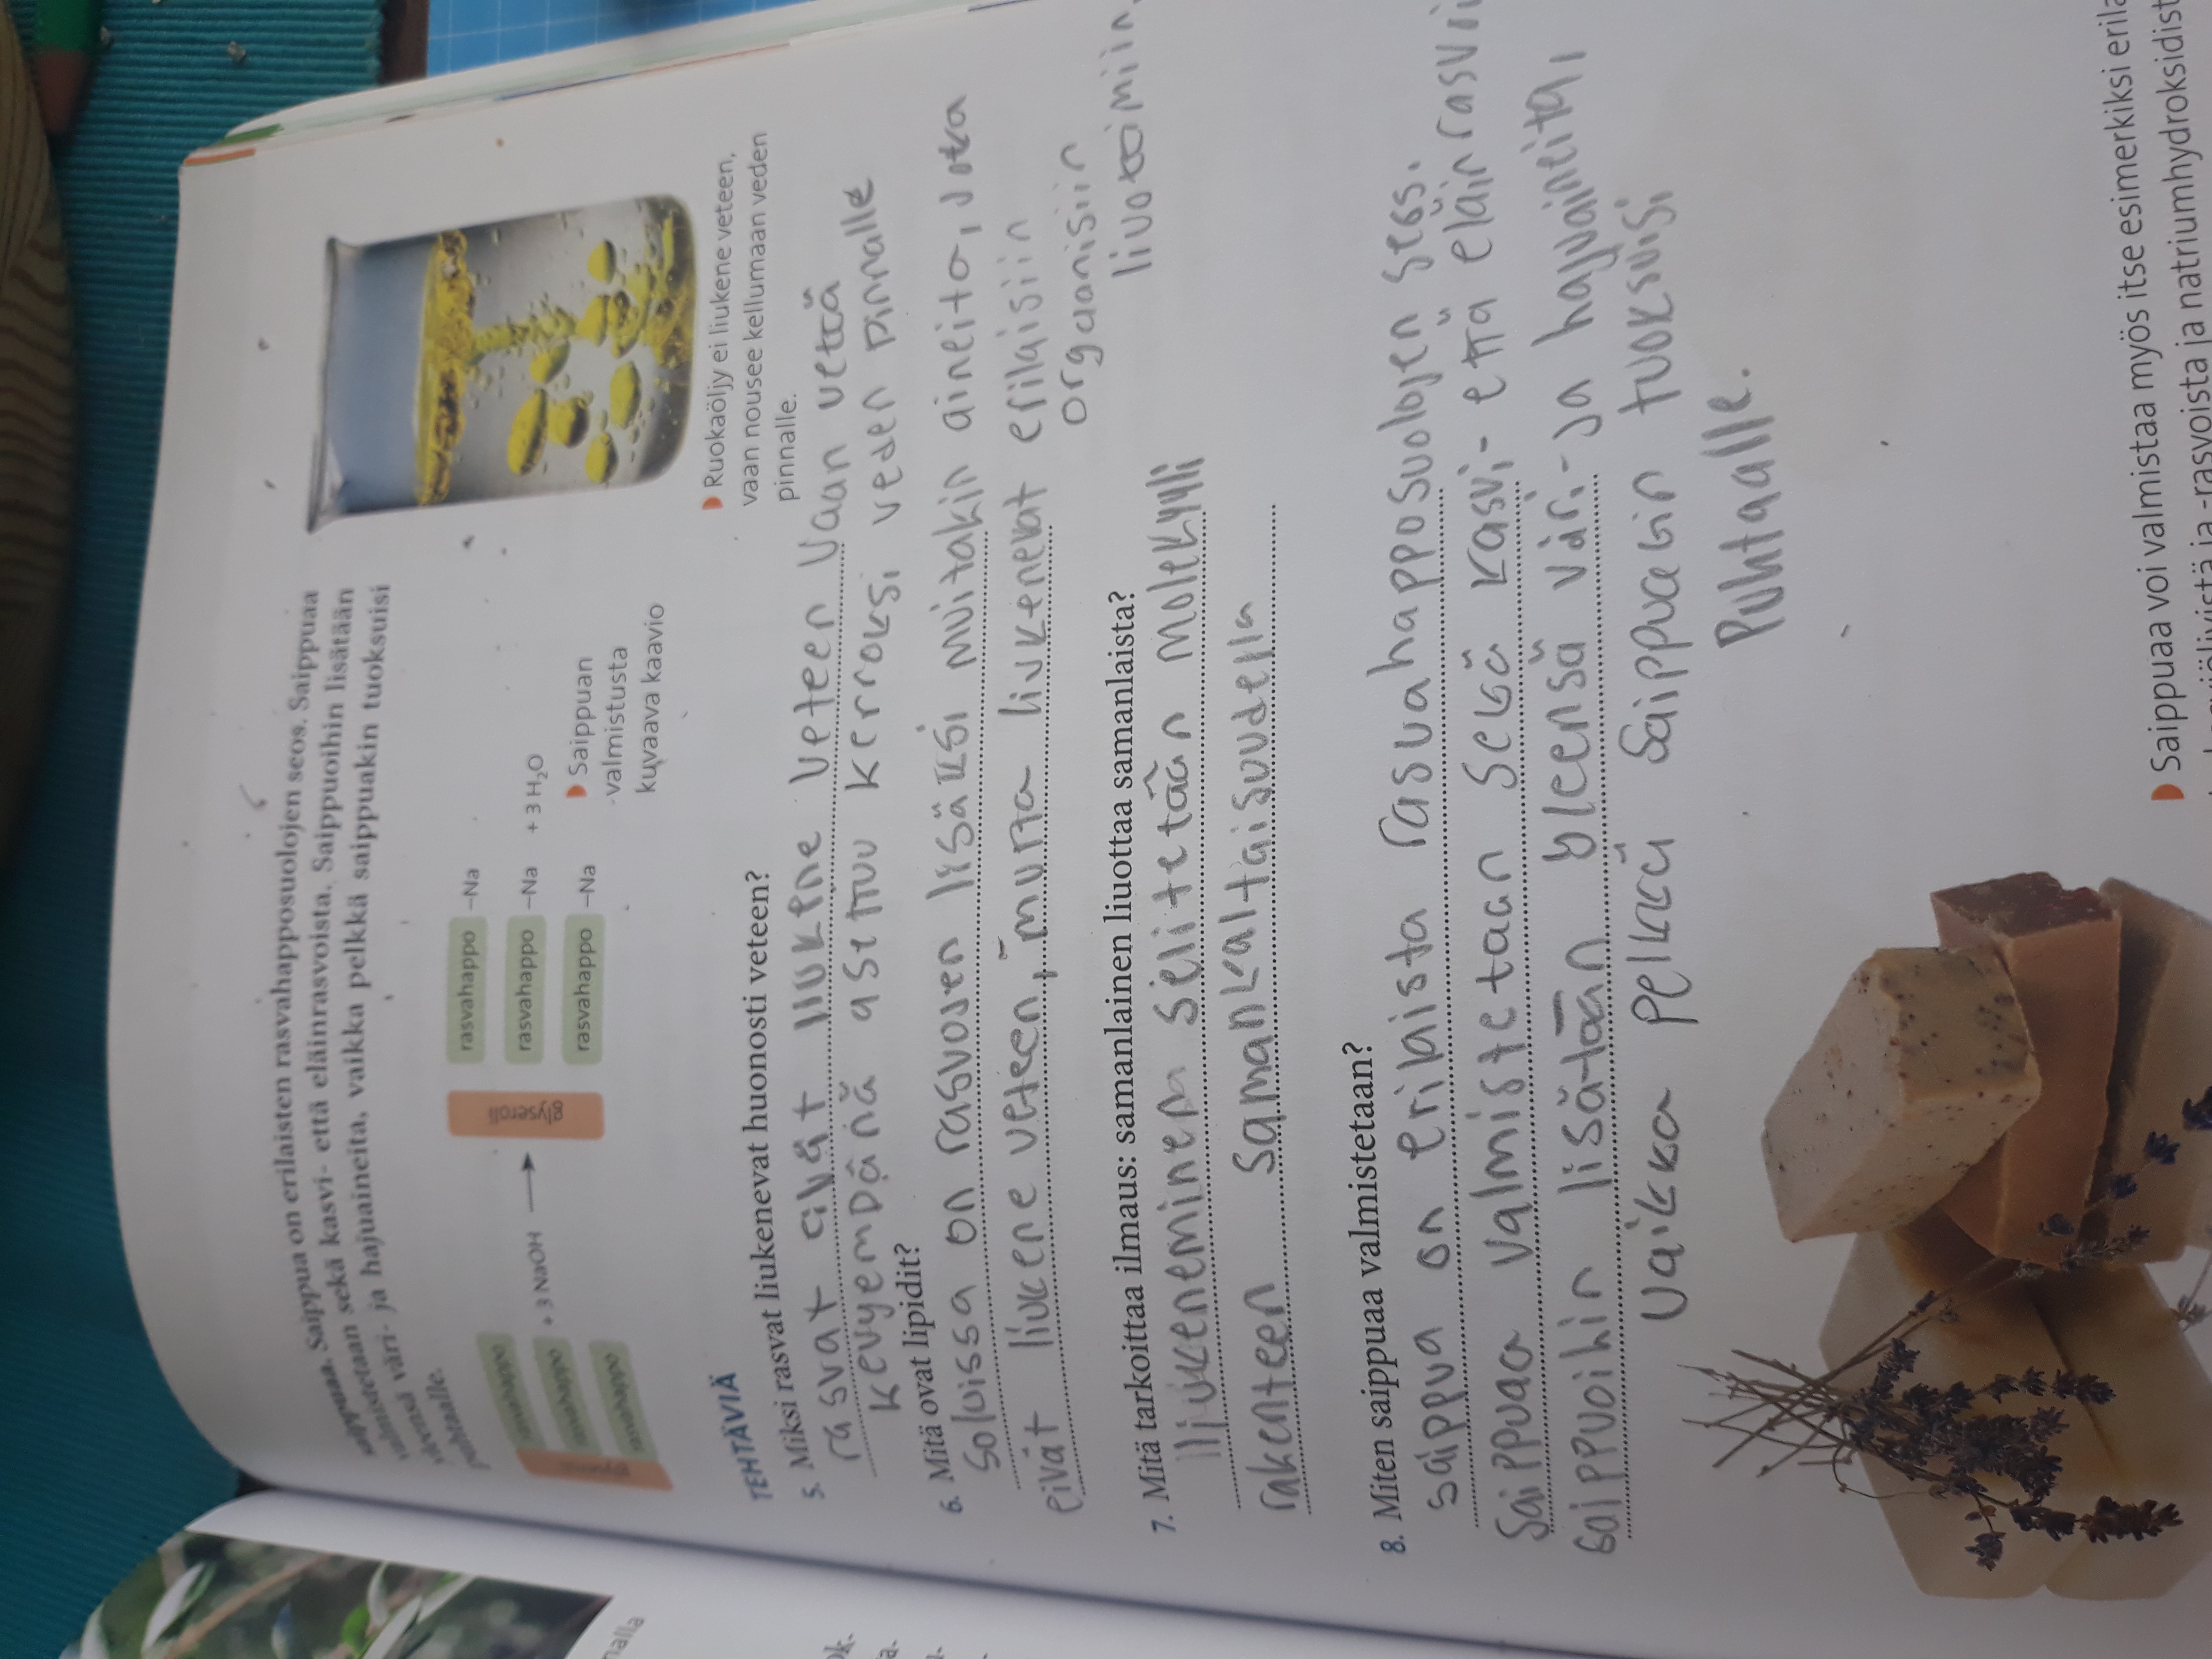 saippuaa. Saippua on erilaisten rasvahapposuolojen seos. Saippuaa
valmistetaan sekä kasvi- että eläinrasvoista. Saippuoihin lisätään
väri- ja hajuaineita, vaikka pelkkä saippuakin tuoksuisi
puhtaalle.
rasvahappo
rasvahappo
rasvahappo
+ 3 NaOH
glyseroli
rasvahappo –Na
rasvahappo –Na + 3 H₂O
rasvahappo –Na
Saippuan
valmistusta
kuvaava kaavio
Ruokaöljy ei liukene veteen,
vaan nousee kellumaan veden
pinnalle.
TEHTÄVIÄ
5. Miksi rasvat liukenevat huonosti veteen?
rasvat eivät liukene veteen vaan vettä
kevyempänä asettuu kerroksi veden pinnalle
6. Mitä ovat lipidit?
Soluissa on rasvojen lisäksi muitakin aineita, jotka
eivät liukene veteen, mutta liukenevat erilaisiin
orgaanisiin
liuottimiin.
7. Mitä tarkoittaa ilmaus: samanlainen liuottaa samanlaista?
liukeneminen selitetään molekyyli
rakenteen samankaltaisuudella
8. Miten saippuaa valmistetaan?
saippua on erilaista rasvahapposuolojen seos.
Saippuaa valmistetaan sekä kasvi- että eläinrasvoi
saippuoihin lisätään yleensä väri- ja hajuaineita,
vaikka pelkkä saippuakin tuoksuisi
Puhtaalle.
Saippuaa voi valmistaa myös itse esimerkiksi
ja -rasvoista ja natriumhydroksidist